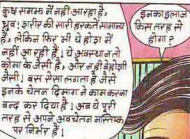 कुछ समझ में नहीं आ रहा है,
शरीर की सारी हरकतें सामान्य
हैं, लेकिन फिर भी ये होश में
नहीं आ रही हैं। ये अवस्था न तो
कोमा के जैसी है, और न ही बेहोशी
जैसी। बस ऐसा लगता है जैसे
इनके चेतन दिमाग ने काम करना
बन्द कर दिया है। अब ये पूरी
तरह से अपने अवचेतन मस्तिष्क
पर निर्भर हैं।
इनका इलाज
किस तरह से
होगा?